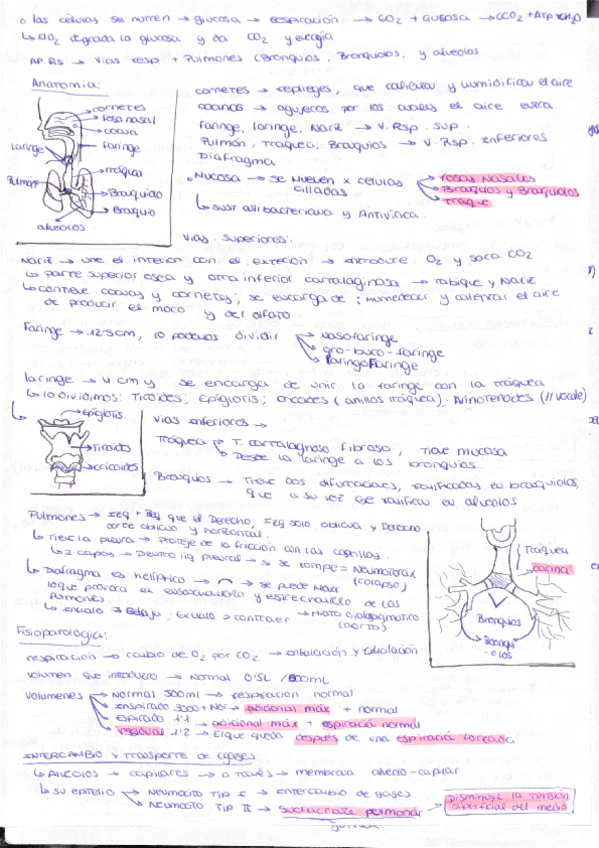 o las células se nutren → glucosa → respiración → CO2 + Glucosa → CO2 + ATP + H2O
↳ O2 degrada la glucosa y da CO2 y energía
AP RS → vias resp + Pulmones (Bronquios, Bronquiolos, y alveolos
Anatomía:
cornetes
fosa nasal
coana
laringe
faringe
tráquea
Pulmón
Braquiolo
Braquio
alveolos
cornetes → repliegues, que calientan y humidifican el aire
coanas → agujeros por los cuales el aire entra
faringe, laringe, Nariz → V. Rsp. Sup.
Pulmón, Traquea, Braquios → V. Rsp. Inferiores
Diafragma
Mucosa → se mueven x celulas cilladas
fosas Nasales
Braquios y Braquiolos
traque
↳ sust antibacteriana y Antivírica.
Vías superiores:
Nariz → une el interior con el exterior → introduce O2 y saca CO2
↳ Parte superior osea y otra inferior cartalaginosa → tabique y Nariz
↳ contiene coanas y cornetes; se encarga de: humedecer y calentar el aire
de producir el moco y del olfato.
Faringe → 12-5cm, lo podemos dividir
Nasofaringe
oro-buco-faringe
laringofaringe
laringe → 4 cm y se encarga de unir la faringe con la tráquea
↳ lo dividimos: Tiroides; Epíglotis; cricoides (anillos tráquea). Aritenoides (// vocale)
epíglotis
Tiroides
cricoides
Vias Inferiores →
Tráquea → T. cartalagnoso fibroso, tiene mucosa
↳ Desde la laringe a los bronquios
Braquios → Tiene dos difurcaciones, ramificadas en braquiolos,
que a su vez se ramifican en alveolos
Pulmones → Izq + peq que el Derecho, Izq solo oblicua y Derecho
corte oblicuo y horizontal.
↳ Tiene la pleura → Protege de la fricción con las costillas.
↳ 2 capas → Dentro liq pleural → si se rompe = Neumotórax
(colapso)
↳ Diafragma es helíptico → se puede mover
lo que provoca el ensanchamiento y estrechamiento de los
Pulmones
Tráquea
carina
Bronquios
Bronquiolos
Fisiopatologia:
respiración → cambio de O2 por CO2 → inhalación y exhalación
volumen que introduce → Normal 0.5L / 500mL
Volumenes
Normal 500ml → respiración normal
Inspirado 3000 + Nor → adicional máx + normal
espirado 1'1 → adicional máx + espiracia normal
residual 1'2 → El que queda después de una espiracia forzada
INTERCAMBIO y TRANSPORTE de gases
↳ Alveolos → capilares → a través → membrana alveolo-capilar
↳ su epitelio → Neumocito TIP I → intercambio de gases
Neumocito TIP II → Surfactante pulmonar
Disminuye la tensión
superficial del medio